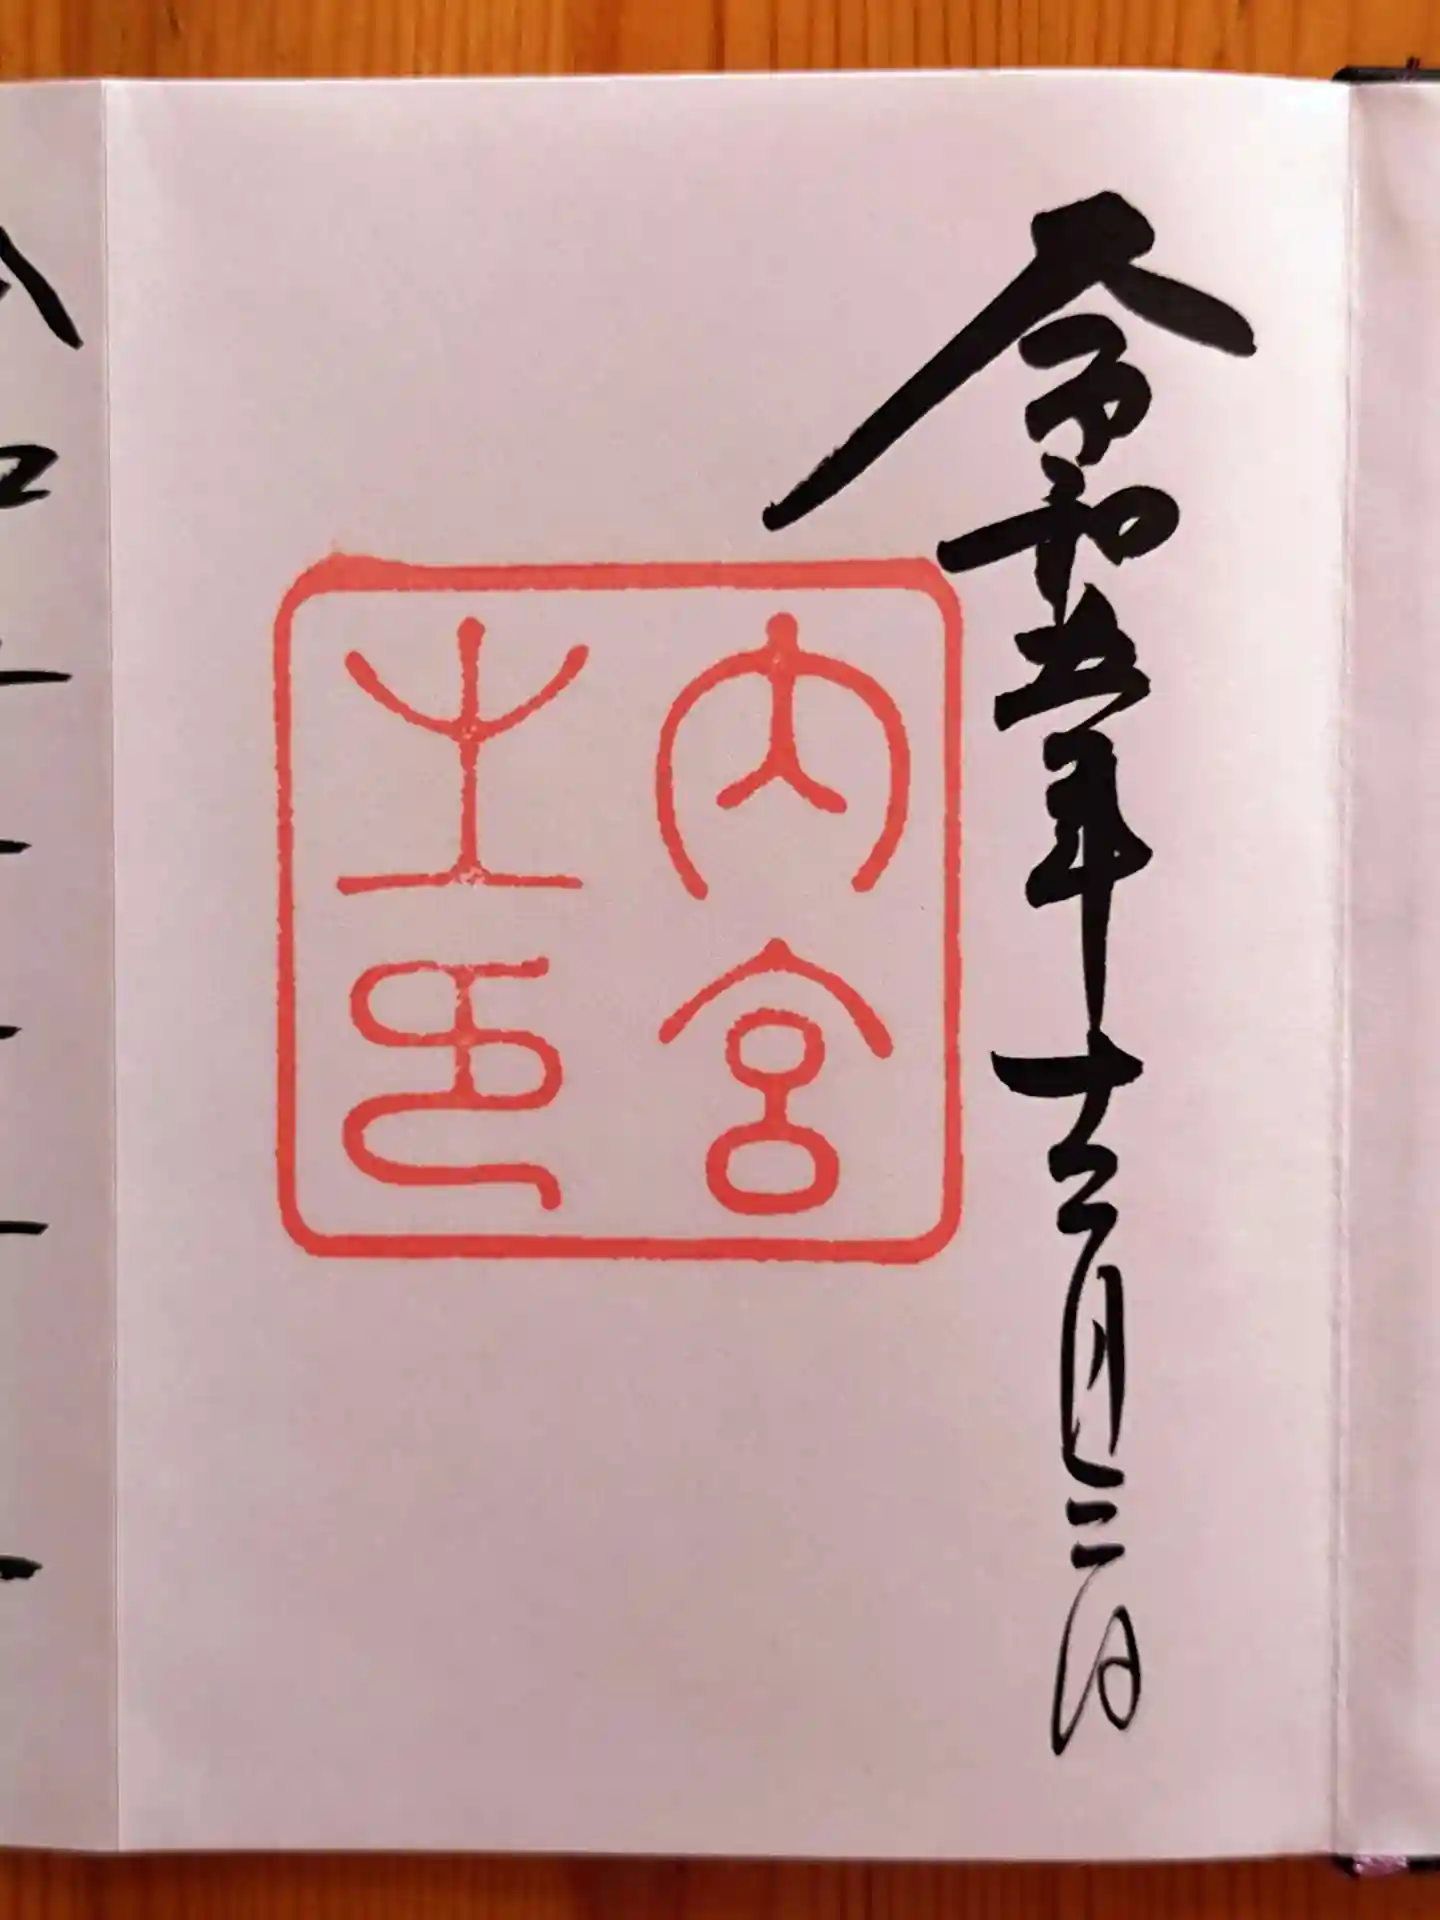 令和五年十二月二日
内宮
之印